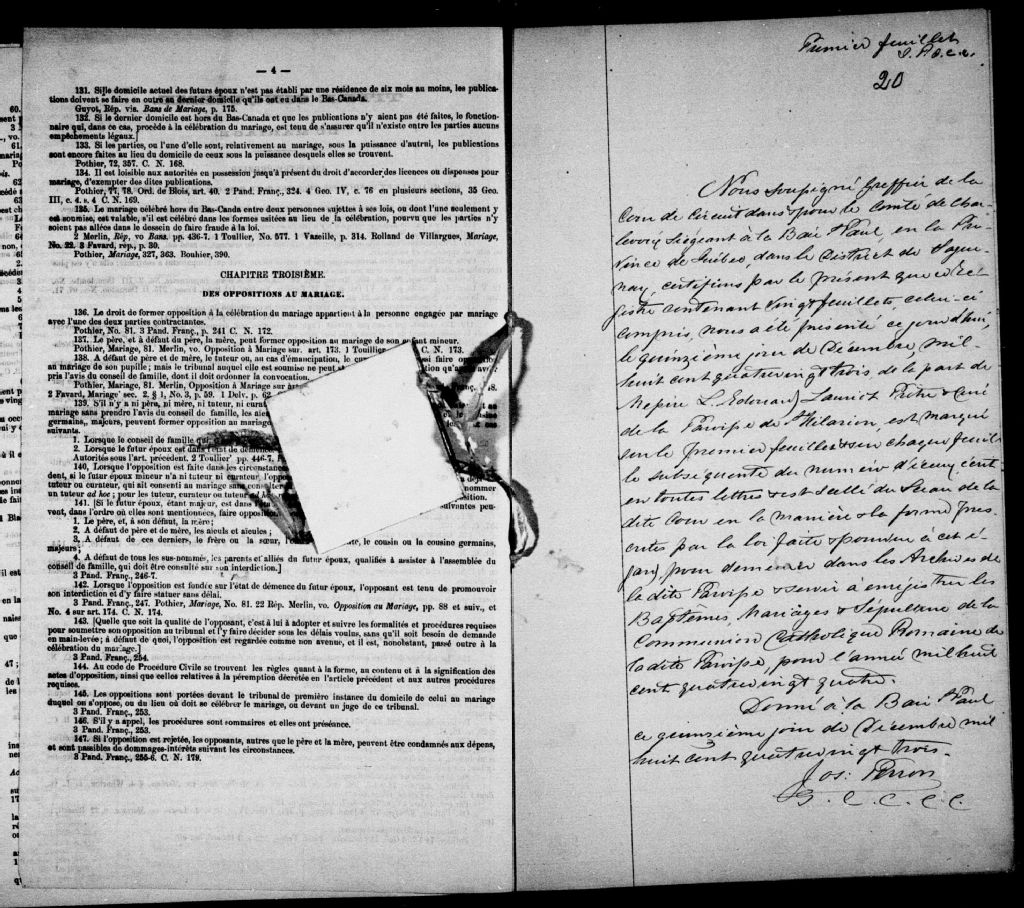 — 4 —
131. Si le domicile actuel des futurs époux n'est pas établi par une résidence de six mois au moins, les publica-
tions doivent se faire en outre au dernier domicile qu'ils ont eu dans le Bas-Canada.
Guyot, Rép. vis. Bans de Mariage, p. 175.
132. Si le dernier domicile est hors du Bas-Canada et que les publications n'y aient pas été faites, le fonction-
naire qui, dans ce cas, procède à la célébration du mariage, est tenu de s'assurer qu'il n'existe entre les parties aucuns
empêchements légaux.]
133. Si les parties, ou l'une d'elle sont, relativement au mariage, sous la puissance d'autrui, les publications
sont encore faites au lieu du domicile de ceux sous la puissance desquels elles se trouvent.
Pothier, 72, 357. C. N. 168.
134. Il est loisible aux autorités en possession jusqu'à présent du droit d'accorder des licences ou dispenses pour
mariage, d'exempter des dites publications.
Pothier, 77, 78. Ord. de Blois, art. 40. 2 Pand. Franç., 324. 4 Geo. IV, c. 76 en plusieurs sections, 35 Geo.
III, c. 4. s. 4 C. N. 169.
135. Le mariage célébré hors du Bas-Canda entre deux personnes sujettes à ses lois, ou dont l'une seulement y
est soumise, est valable, s'il est célébré dans les formes usitées au lieu de la célébration, pourvu que les parties n'y
soient pas allées dans le dessein de faire fraude à la loi.
2 Merlin, Rép, vo Bans. pp. 436-7. 1 Toullier, No. 577. 1 Vazeille, p. 314. Rolland de Villargues, Mariage,
No. 22. 3 Favard, rep., p. 30.
Pothier, Mariage, 327, 363. Bouhier, 390.
CHAPITRE TROISIÈME.
DES OPPOSITIONS AU MARIAGE.
136. Le droit de former opposition à la célébration du mariage appartient à la personne engagée par mariage
avec l'une des deux parties contractantes.
Pothier, No. 81. 3 Pand. Franç., p. 241 C. N. 172.
137. Le père, et à défaut du père, la mère, peut former opposition au mariage de son enfant mineur.
Pothier, Mariage, 81. Merlin, vo. Opposition à Mariage sur. art. 173. 1 Toullier C. N. 173.
138. A défaut de père et de mère, le tuteur ou, au cas d'émancipation, le
au mariage de son pupille; mais le tribunal auquel elle est soumise ne peut
pris l'avis du conseil de famille, dont il doit ordonner la convocation.
Pothier, Mariage, 81. Merlin, Opposition à Mariage sur
2 Favard, Mariage sec. 2. § 1, No. 3, p. 59. 1 Delv. p. 62
139. S'il n'y a ni père, ni mère, ni tuteur, ni
mariage sans prendre l'avis du conseil de famille, les
germains, majeurs, peuvent former opposition au mariage
suivants.
1. Lorsque le conseil de famille
2. Lorsque le futur époux est dans l'état de démence
Autorités sous l'art. précédent. 2 Toullier pp. 446-7.
140, Lorsque l'opposition est faite dans les
dent, si le futur époux mineur n'a ni tuteur ni curateur,
tuteur ou curateur, qui ait consenti au mariage sans consulter nommer
un tuteur ad hoc; pour les tuteur, curateur ou tuteur
141. [Si le futur époux, étant majeur, est dans suivantes peu-
vent, dans l'ordre où elles sont mentionnées, faire
1. Le père, et, à son défaut, la mère;
2. A défaut de père et de mère, les aïeuls et aïeules;
3. A défaut de ces derniers, le frère ou la sœur, le cousin ou la cousine germains,
majeurs;
4. A défaut de tous les sus-nommés, les parents et alliés du futur époux, qualifiés à assister à l'assemblée du
conseil de famille, qui doit être consulté sur son interdiction.]
3 Pand. Franç., 246-7.
142. Lorsque l'opposition est fondée sur l'état de démence du futur époux, l'opposant est tenu de promouvoir
son interdiction et d'y faire statuer sans délai.
3 Pand. Franç., 247. Pothier, Mariage, No. 81. 22 Rép. Merlin, vo. Opposition au Mariage, pp. 88 et suiv., et
No. 4 sur art. 174. C. N. 174.
143. [Quelle que soit la qualité de l'opposant, c'est à lui à adopter et suivre les formalités et procédures requises
pour soumettre son opposition au tribunal et l'y faire décider sous les délais voulus, sans qu'il soit besoin de demande
en main-levée; à défaut de quoi, l'opposition est regardée comme non avenue, et il est, nonobstant, passé outre à la
célébration du mariage.]
3 Pand. Franç., 254.
144. Au code de Procédure Civile se trouvent les règles quant à la forme, au contenu et à la signification des
actes d'opposition, ainsi que celles relatives à la péremption décrétée en l'article précédent et aux autres procédures
requises.
145. Les oppositions sont portées devant le tribunal de première instance du domicile de celui au mariage
duquel on s'oppose, ou du lieu où doit se célébrer le mariage, ou devant un juge de ce tribunal.
3 Pand. Franç., 253.
146. S'il y a appel, les procédures sont sommaires et elles ont préséance.
3 Pand. Franç., 253.
147. Si l'opposition est rejetée, les opposants, autres que le père et la mère, peuvent être condamnés aux dépens,
et sont passibles de dommages-intérêts suivant les circonstances.
3 Pand. Franç., 255-6. C. N. 179.
Premier feuillet
20
Nous soussigné greffier de la
Cour de Circuit dans & pour le Comté de Char-
levoix siégeant à la Baie St Paul, en la Pro-
vince de Québec, dans le District de Sague-
nay, certifions par le présent que ce Ré-
gistre contenant vingt feuillets, celui-ci
compris, nous a été présenté ce jourd'hui,
le quinzième jour de Décembre, mil
huit cent quatrevingt trois de la part de
Messire L. Edouard Lauriot Prêtre & Curé
de la Paroisse de St Hilarion, est marqué
sur le premier feuillet & sur chaque feuil-
le subséquente du numéro d'iceux écrit
en toutes lettres & est scellé du Sceau de la
dite Cour en la manière & la forme pres-
crites par la loi faite & pourvue à cet é-
gard, pour demeurer dans les Archives de
la dite Paroisse & servir à enregistrer les
Baptêmes, Mariages & Sépultures de la
Communion Catholique Romaine de
la dite Paroisse, pour l'année mil huit
cent quatrevingt quatre.
Donné à la Baie St Paul
ce quinzième jour de Décembre mil
huit cent quatrevingt trois.
Jos: Perron
G. C. C. C. C.